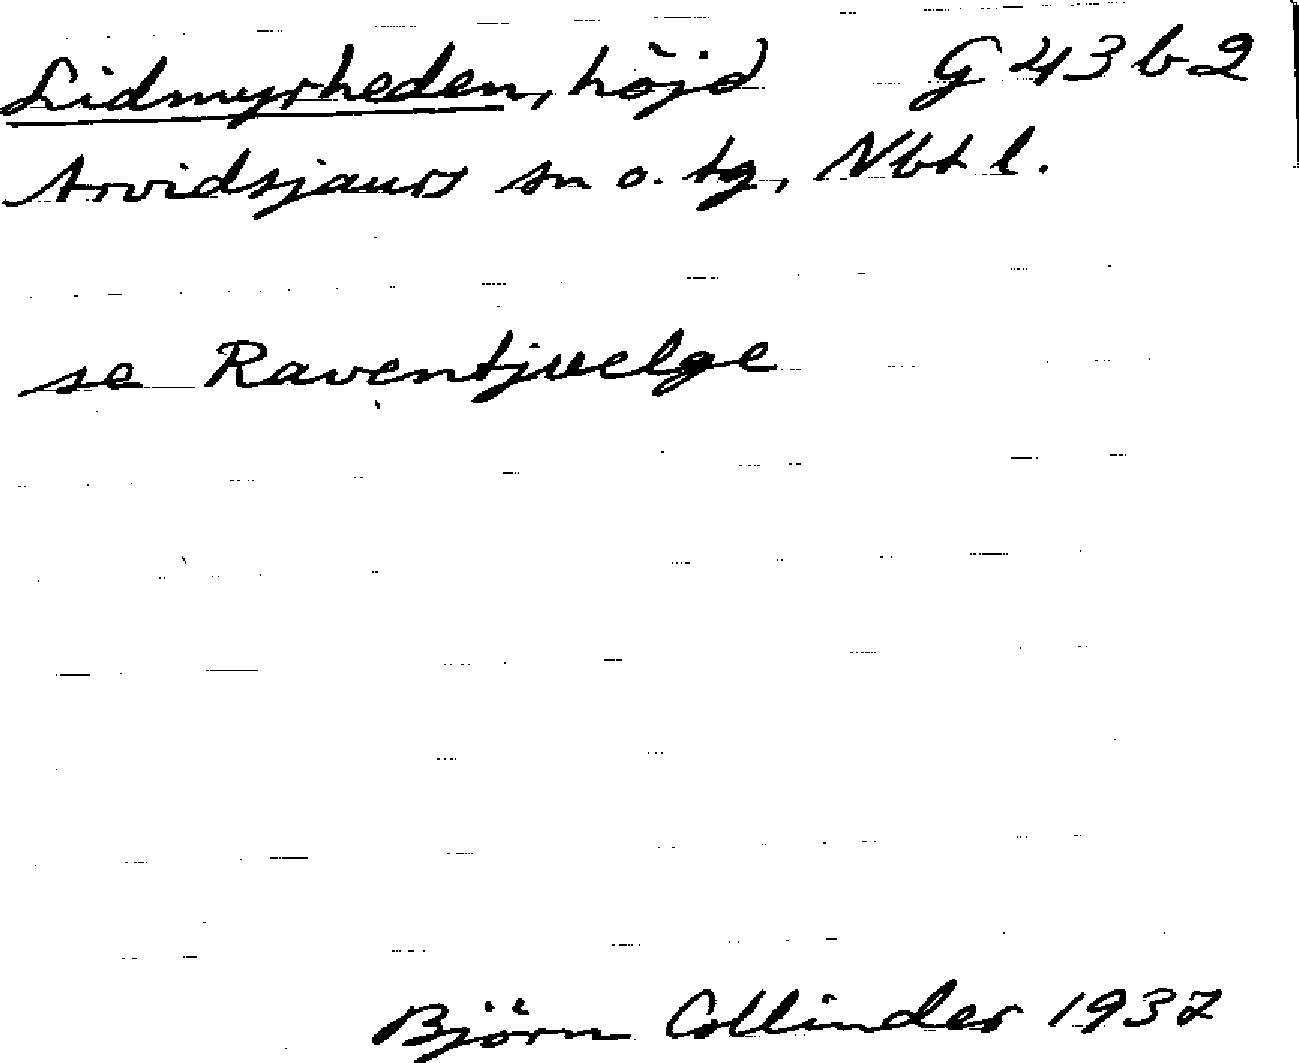 Lidmyrheden, höjd G 43 b 2
Arvidsjaurs sn o. tg, Nbt l.
se Raventjuelge
Björn Collinder 1937